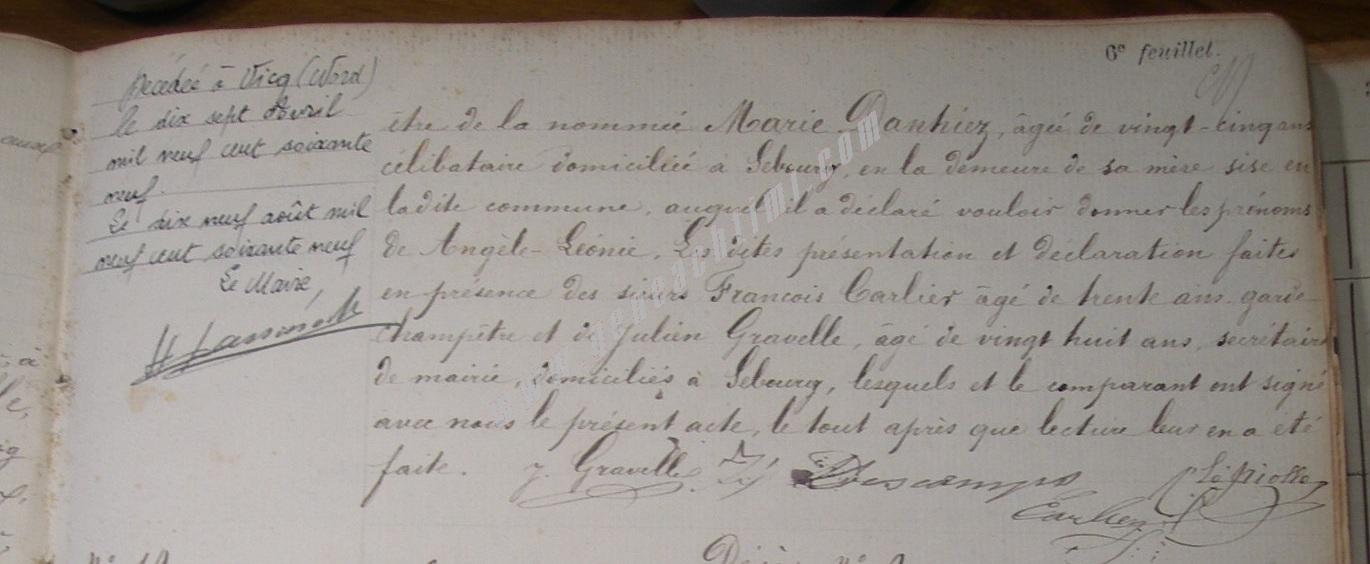 6e feuillet.
Décédée à Vicq (Nord)
le dix sept Avril
mil neuf cent soixante
neuf.
Le dix neuf août mil
neuf cent soixante neuf
Le Maire,
être de la nommée Marie Danhiez, âgée de vingt-cinq ans
célibataire domiciliée à Sebourg, en la demeure de sa mère sise en
ladite commune, auquel il a déclaré vouloir donner les prénoms
de Angèle-Léonie. Les dites présentation et déclaration faites
en présence des sieurs François Carlier âgé de trente ans garde-
champêtre et de Julien Gravelle, âgé de vingt huit ans, secrétaire
de mairie, domiciliés à Sebourg, lesquels et le comparant ont signé
avec nous le présent acte, le tout après que lecture leur en a été
faite. J. Gravelle Descamps
Carlier